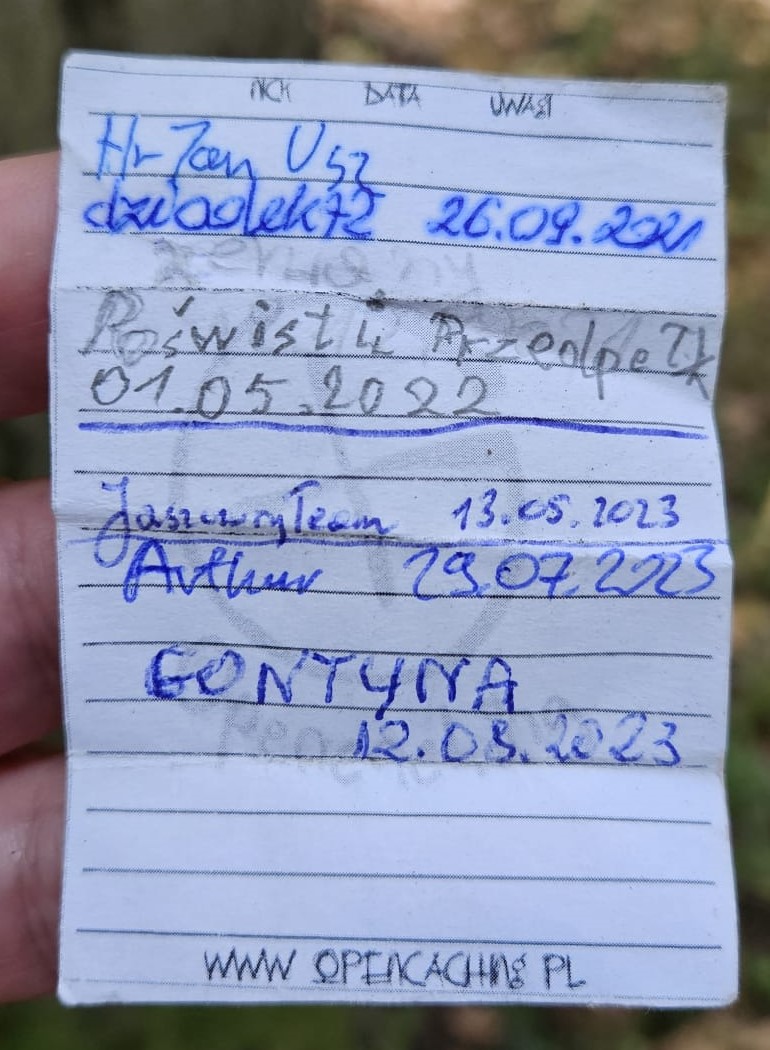 NCK DATA UWAGI
Hr Jan Usz
dziadek72 26.09.2021
Poświst i Przedpełk
01.05.2022
Team 13.05.2023
Arthur 29.07.2023
GONTYNA
12.08.2023
WWW OPENCACHING PL